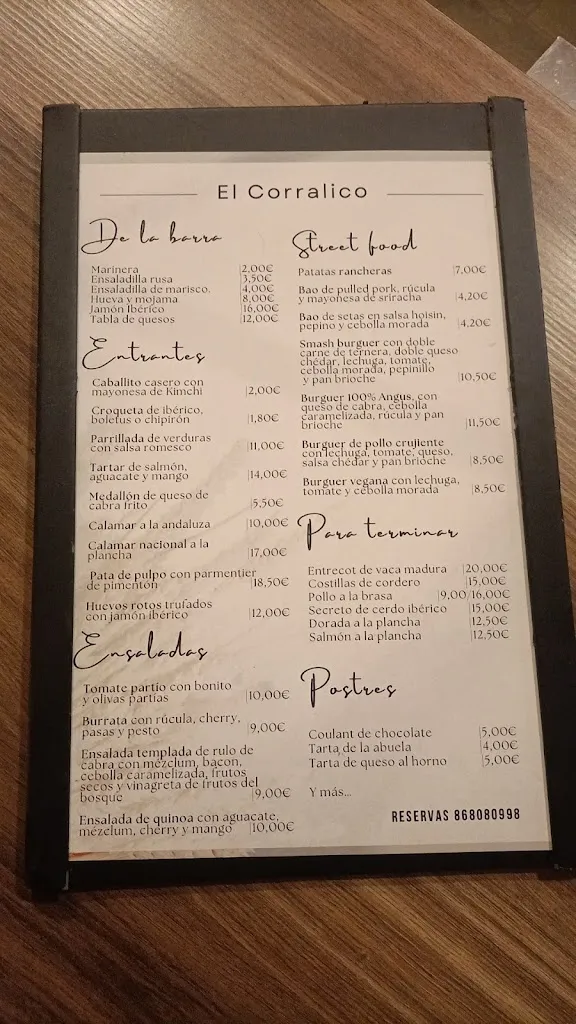 El Corralico
De la barra
Marinera |2,00€
Ensaladilla rusa |3,50€
Ensaladilla de marisco. |4,00€
Hueva y mojama |8,00€
Jamón Ibérico |16,00€
Tabla de quesos |12,00€
Entrantes
Caballito casero con
mayonesa de Kimchi |2,00€
Croqueta de ibérico,
boletus o chipirón |1,80€
Parrillada de verduras
con salsa romesco |11,00€
Tartar de salmón,
aguacate y mango |14,00€
Medallón de queso de
cabra frito |5,50€
Calamar a la andaluza |10,00€
Calamar nacional a la
plancha |17,00€
Pata de pulpo con parmentier
de pimentón |18,50€
Huevos rotos trufados
con jamón ibérico |12,00€
Ensaladas
Tomate partío con bonito
y olivas partías |10,00€
Burrata con rúcula, cherry,
pasas y pesto |9,00€
Ensalada templada de rulo de
cabra con mézclum, bacon,
cebolla caramelizada, frutos
secos y vinagreta de frutos del
bosque |9,00€
Ensalada de quinoa con aguacate,
mézclum, cherry y mango |10,00€
Street food
Patatas rancheras |7,00€
Bao de pulled pork, rúcula
y mayonesa de sriracha |4,20€
Bao de setas en salsa hoisin,
pepino y cebolla morada |4,20€
Smash burguer con doble
carne de ternera, doble queso
chédar, lechuga, tomate,
cebolla morada, pepinillo
y pan brioche |10,50€
Burguer 100% Angus, con
queso de cabra, cebolla
caramelizada, rúcula y pan
brioche |11,50€
Burguer de pollo crujiente
con lechuga, tomate, queso,
salsa chédar y pan brioche |8,50€
Burguer vegana con lechuga,
tomate y cebolla morada |8,50€
Para terminar
Entrecot de vaca madura |20,00€
Costillas de cordero |15,00€
Pollo a la brasa |9,00/16,00€
Secreto de cerdo ibérico |15,00€
Dorada a la plancha |12,50€
Salmón a la plancha |12,50€
Postres
Coulant de chocolate |5,00€
Tarta de la abuela |4,00€
Tarta de queso al horno |5,00€
Y más...
RESERVAS 868080998